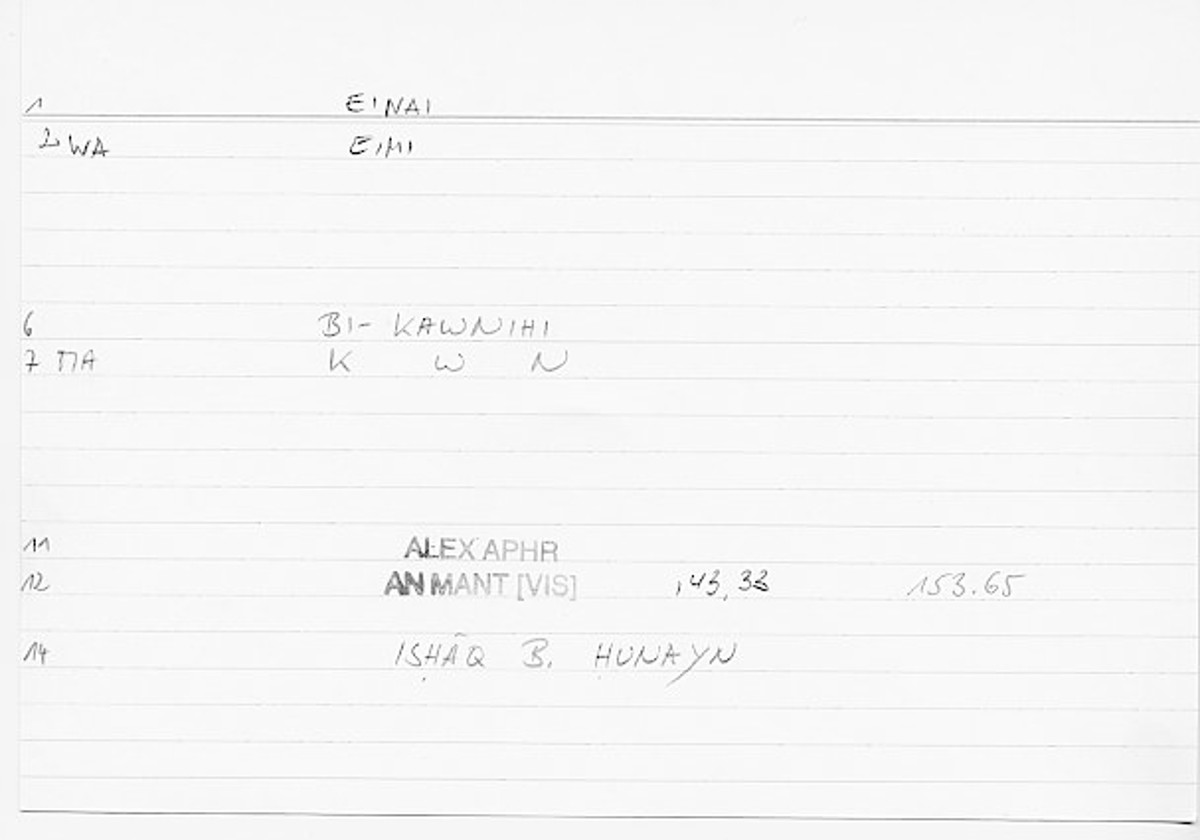 1 EINAI
2 WA EIMI
6 BI- KAWNIHI
7 MA K W N
11 ALEX APHR
12 AN MANT [VIS] ,43,33 153.65
14 ISḤĀQ B. ḤUNAYN